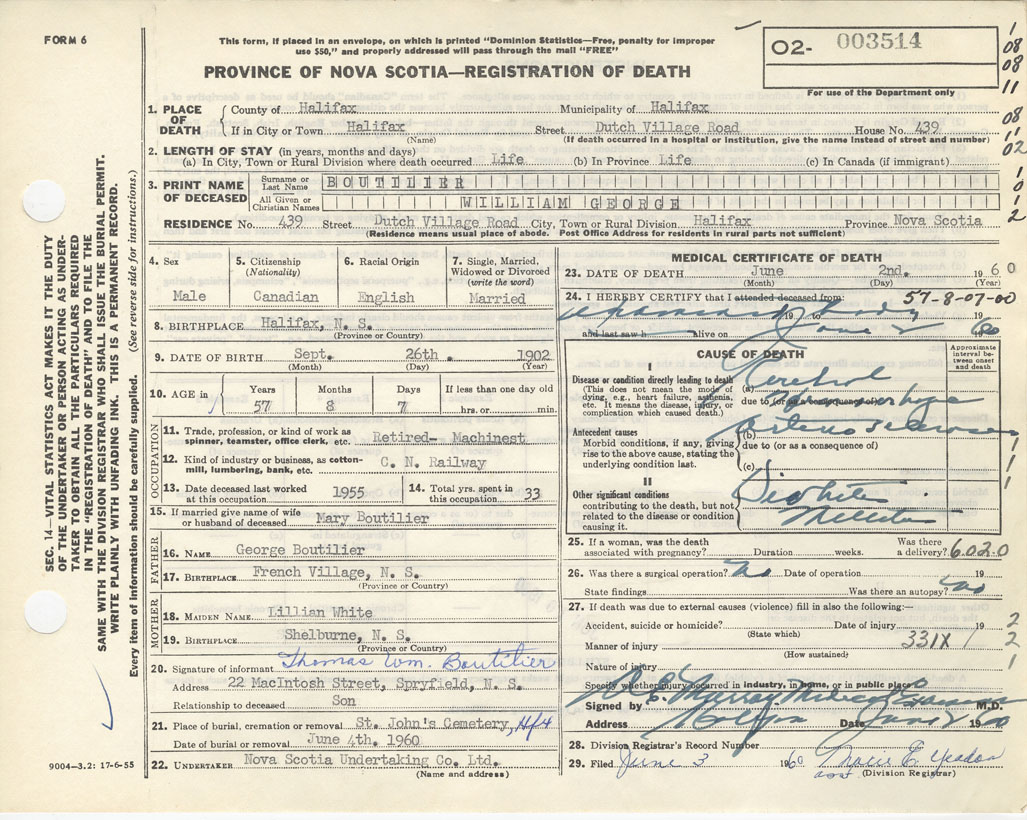 FORM 6
This form, if placed in an envelope, on which is printed "Dominion Statistics—Free, penalty for improper
use $50," and properly addressed will pass through the mail "FREE"
PROVINCE OF NOVA SCOTIA—REGISTRATION OF DEATH
O2- 003514
For use of the Department only
1
08
08
11
08
02
1
0
1
2
SEC. 14—VITAL STATISTICS ACT MAKES IT THE DUTY
OF THE UNDERTAKER OR PERSON ACTING AS UNDER-
TAKER TO OBTAIN ALL THE PARTICULARS REQUIRED
IN THE "REGISTRATION OF DEATH" AND TO FILE THE
SAME WITH THE DIVISION REGISTRAR WHO SHALL ISSUE THE BURIAL PERMIT.
WRITE PLAINLY WITH UNFADING INK. THIS IS A PERMANENT RECORD.
Every item of information should be carefully supplied. (See reverse side for instructions.)
1. PLACE OF DEATH
County of Halifax Municipality of Halifax
If in City or Town Halifax Street Dutch Village Road House No. 439
(Name) (If death occurred in a hospital or institution, give the name instead of street and number)
2. LENGTH OF STAY (in years, months and days)
(a) In City, Town or Rural Division where death occurred Life (b) In Province Life (c) In Canada (if immigrant)
3. PRINT NAME OF DECEASED
Surname or Last Name BOUTILIER
All Given or Christian Names WILLIAM GEORGE
RESIDENCE No. 439 Street Dutch Village Road City, Town or Rural Division Halifax Province Nova Scotia
(Residence means usual place of abode. Post Office Address for residents in rural parts not sufficient)
4. Sex
Male
5. Citizenship
(Nationality)
Canadian
6. Racial Origin
English
7. Single, Married, Widowed or Divorced
(write the word)
Married
8. BIRTHPLACE Halifax, N. S.
(Province or Country)
9. DATE OF BIRTH Sept. 26th. 1902
(Month) (Day) (Year)
10. AGE in
Years Months Days If less than one day old
57 8 7 hrs. or min.
OCCUPATION
11. Trade, profession, or kind of work as
spinner, teamster, office clerk, etc. Retired- Machinest
12. Kind of industry or business, as cotton-
mill, lumbering, bank, etc. C. N. Railway
13. Date deceased last worked
at this occupation 1955
14. Total yrs. spent in
this occupation 33
15. If married give name of wife
or husband of deceased Mary Boutilier
FATHER
16. NAME George Boutilier
17. BIRTHPLACE French Village, N. S.
(Province or Country)
MOTHER
18. MAIDEN NAME Lillian White
19. BIRTHPLACE Shelburne, N. S.
(Province or Country)
20. Signature of informant Thomas Wm. Boutilier
Address 22 MacIntosh Street, Spryfield, N. S.
Relationship to deceased Son
21. Place of burial, cremation or removal St. John's Cemetery,
Date of burial or removal June 4th. 1960
22. UNDERTAKER Nova Scotia Undertaking Co. Ltd.
(Name and address)
9004—3.2: 17-6-55
MEDICAL CERTIFICATE OF DEATH
23. DATE OF DEATH June 2nd. 1960
(Month) (Day) (Year)
24. I HEREBY CERTIFY that I attended deceased from: 57-8-07-00
19 to 19
and last saw h alive on June 2 1960
CAUSE OF DEATH
Approximate interval between onset and death
I
Disease or condition directly leading to death
(This does not mean the mode of
dying, e.g., heart failure, asthenia,
etc. It means the disease, injury, or
complication which caused death.)
(a) Cerebral
due to (or as a consequence of)
Antecedent causes
Morbid conditions, if any, giving
rise to the above cause, stating the
underlying condition last.
(b)
due to (or as a consequence of)
(c)
II
Other significant conditions
contributing to the death, but not
related to the disease or condition
causing it.
Diabetes
Mellitus
1
1
1
25. If a woman, was the death
associated with pregnancy? Duration weeks. Was there
a delivery? 6020
26. Was there a surgical operation? No Date of operation 19
State findings Was there an autopsy? No
27. If death was due to external causes (violence) fill in also the following:—
Accident, suicide or homicide? Date of injury 19
(State which)
Manner of injury 331X
(How sustained)
Nature of injury
2
2
1
Specify whether injury occurred in industry, in home, or in public place
Signed by Murray Medical Examiner M.D.
Address Halifax Date June 2 1960
28. Division Registrar's Record Number
29. Filed June 3 1960
(Division Registrar)